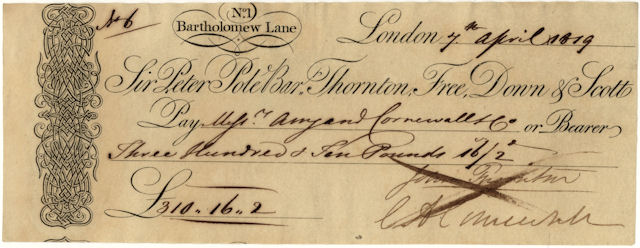 No 6
No. 1
Bartholomew Lane
London 7th April 1819
Sir Peter Pole Bart, Thornton, Free, Down & Scott
Pay Messrs. Amyand Cornewall & Co or Bearer
Three Hundred & Ten Pounds 16/2
£310.. 16.. 2